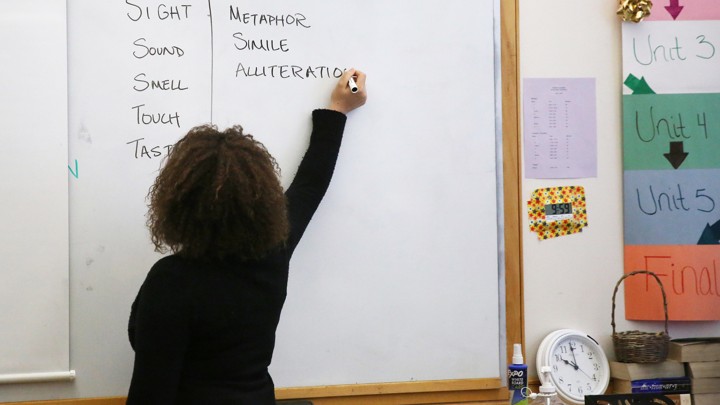 SIGHT
SOUND
SMELL
TOUCH
TAST
METAPHOR
SIMILE
ALLITERATIO
9:59
Unit 3
Unit 4
Unit 5
Final
EXPO
dictionary